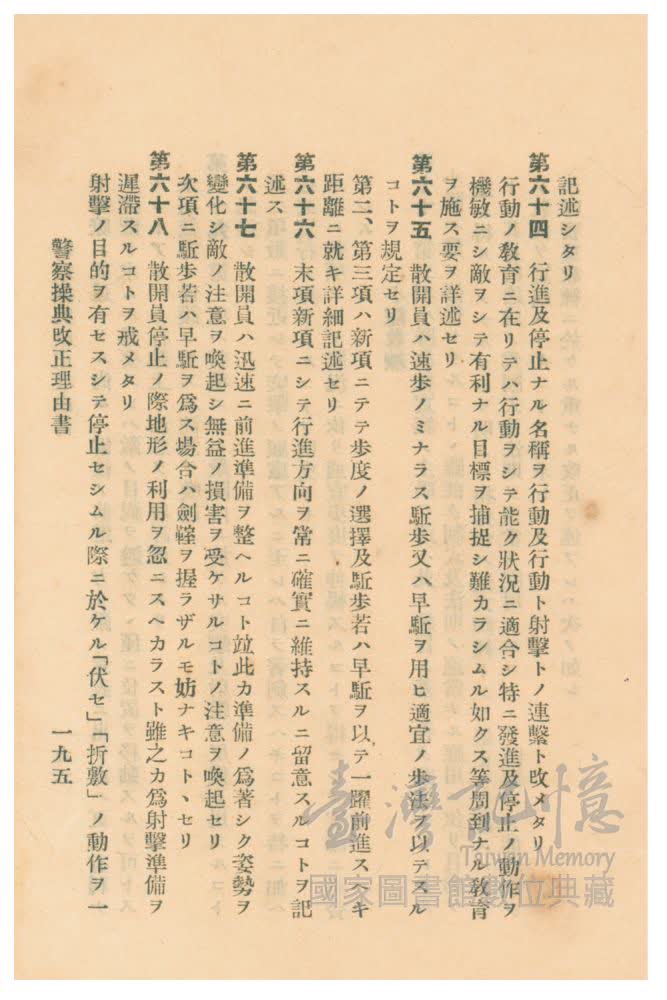 記述シタリ
第六十四　行進及停止ナル名稱ヲ行動及行動ト射擊トノ連繫ト改メタリ
行動ノ敎育ニ在リテハ行動ヲシテ能ク狀況ニ適合シ特ニ發進及停止ノ動作ヲ
機敏ニシ敵ヲシテ有利ナル目標ヲ捕捉シ難カラシムル如クス等周到ナル敎育
ヲ施ス要ヲ詳述セリ
第六十五　散開員ハ速步ノミナラス駈步又ハ早駈ヲ用ヒ適宜ノ步法ヲ以テスル
コトヲ規定セリ
第二、第三項ハ新項ニテテ步度ノ選擇及駈步若ハ早駈ヲ以テ一躍前進スヘキ
距離ニ就キ詳細記述セリ
第六十六　末項新項ニシテ行進方向ヲ常ニ確實ニ維持スルニ留意スルコトヲ記
述ス
第六十七　散開員ハ迅速ニ前進準備ヲ整ヘルコト竝此カ準備ノ爲著シク姿勢ヲ
變化シ敵ノ注意ヲ喚起シ無益ノ損害ヲ受ケサルコトノ注意ヲ喚起セリ
次項ニ駈步若ハ早駈ヲ爲ス場合ハ劍鞘ヲ握ラザルモ妨ナキコトヽセリ
第六十八　散開員停止ノ際地形ノ利用ヲ忽ニスヘカラスト雖之カ爲射擊準備ヲ
遲滯スルコトヲ戒メタリ
射擊ノ目的ヲ有セスシテ停止セシムル際ニ於ケル「伏セ」「折敷」ノ動作ヲ一
警察操典改正理由書
一九五
臺灣記憶
Taiwan Memory
國家圖書館數位典藏